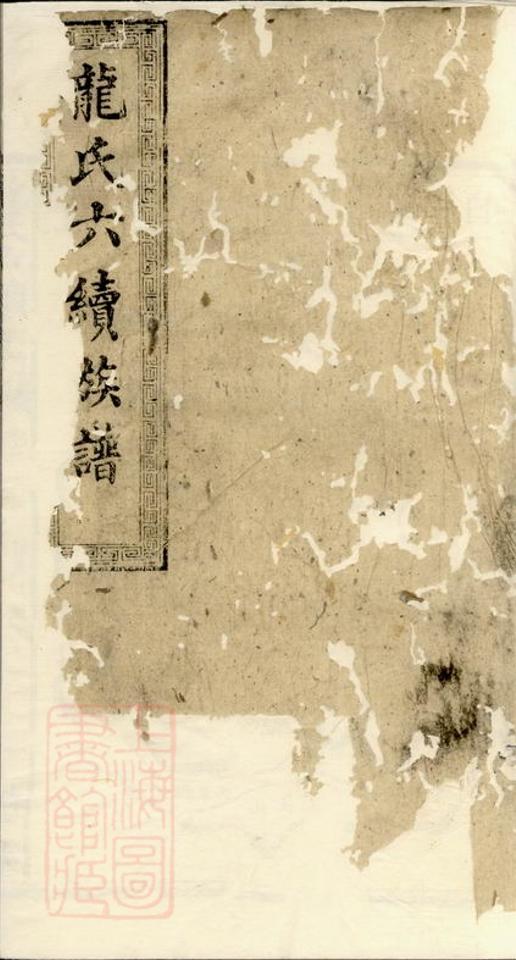 龍氏六續族譜
上海圖書館藏